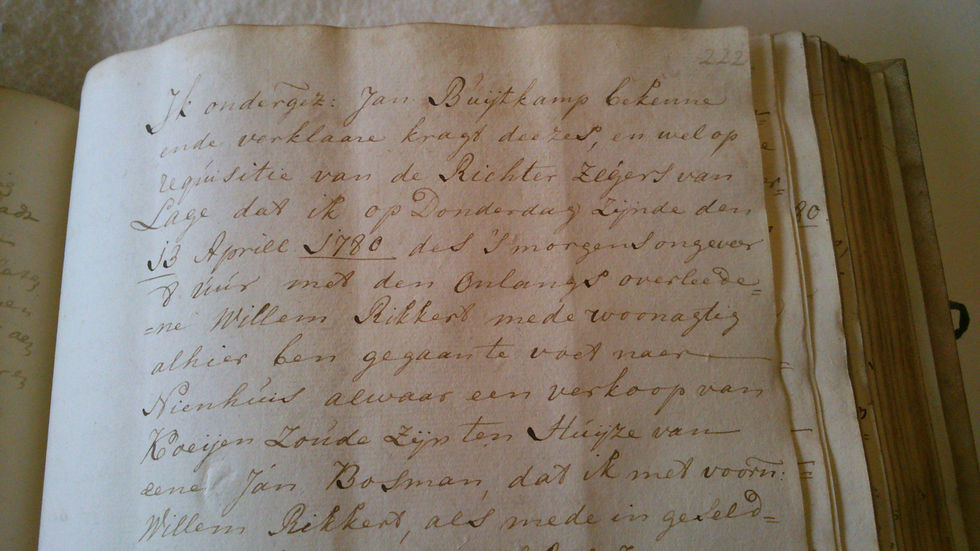 222
Ik ondergez: Jan Buijtkamp bekenne
ende verklaare kragt deezes, en wel op
requisitie van de Richter Zégers van
Lage dat ik op Donderdag Zijnde den
13 Aprill 1780 des 's morgens ongeveer
úúr met den Onlangs overleede=
=ne Willem Rikkert mede woonagtig
alhier ben gegaan te voet naer
Nienhúis alwaar een verkoop van
Koeijen Zoúde Zijn ten Húijze van
eene Ján Bosman, dat ik met voorn:
Willem Rikkert, als mede in geseld=
80